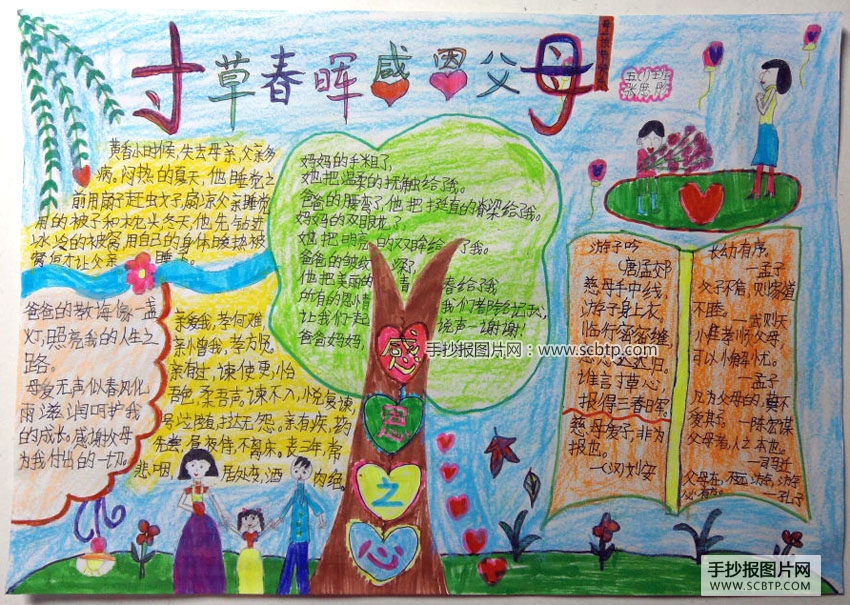 寸草春晖感恩父母
五(1)班
黄香小时候,失去母亲,父亲多
病。闷热的夏天,他睡觉之
前用扇子赶虫文子,扇凉父亲睡觉
用的被子和枕头冬天,他先钻进
冰冷的被窝,用自己的身体晚热被
窝后才让父亲睡去。
妈妈的手粗了,
她把温柔的抚触给了我。
爸爸的腰弯了,他把挺直的脊梁给了我。
妈妈的双眼花了,
她把明亮的双眸给了我。
爸爸的皱纹深了,
他把美丽的青春给了我
所有的恩情我们都
让我们一起说声一谢谢!
爸爸妈妈,
爸爸的教诲像一盏
灯,照亮我的人生之
路。
母爱无声似春风化
雨滋润呵护我
的成长。感谢父母
为我付出的一切。
亲爱我,孝何难,
亲憎我,孝方贤。
亲有过,谏使更,怡
吾色,柔吾声。谏不入,悦复谏,
号泣随,挞无怨。亲有疾,药
先尝,昼夜侍,不离床。丧三年,常
悲咽,居处变,酒肉绝。
游子吟
(唐孟郊)
慈母手中线,
游子身上衣
临行密密缝,
意恐迟迟归。
谁言寸草心,
报得三春晖。
慈母爱子,非为
报也。
—(汉)刘安
长幼有序。
—孟子
父子不信,则家道
不睦。
—武则天
小佳孝顺父母,
可以小解小尤。
—孟子
凡为父母的,莫不
爱其子。—陈宏谋
父母者,人之本也。
—司马迁
父母在,不远游,游
必有方。—孔子
感
恩
之
心
手抄报图片网:www.scbtp.com
手抄报图片网
WWW.SCBTP.COM